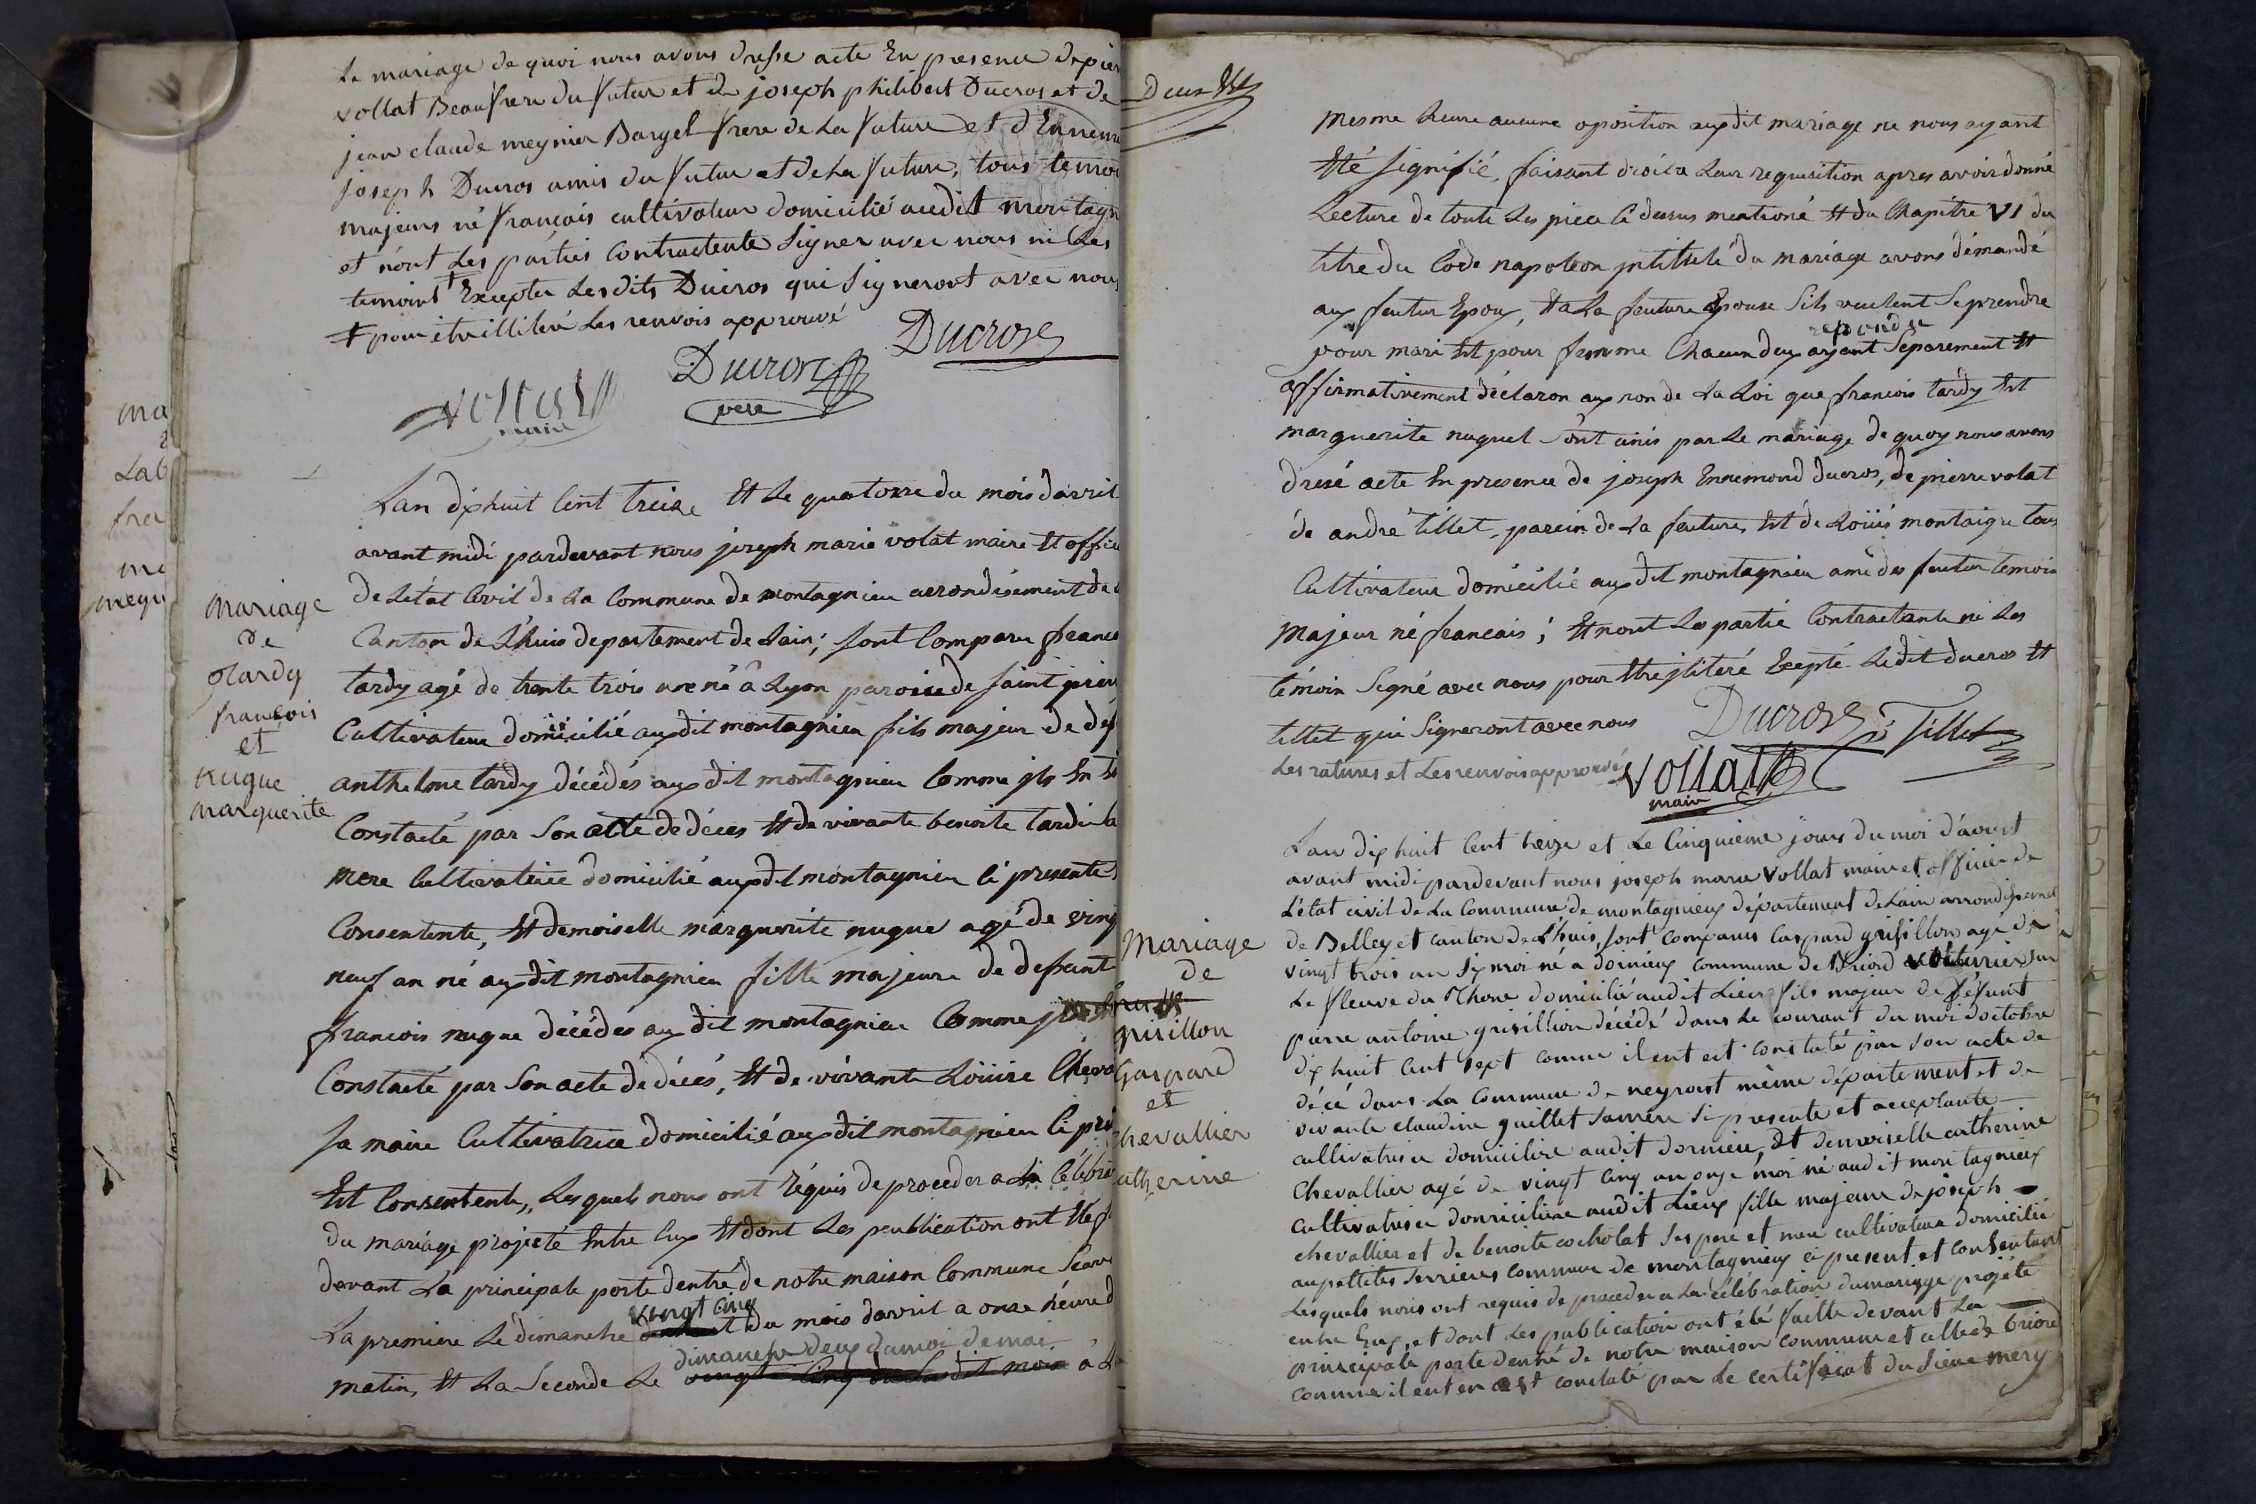 le mariage de quoi nous avons dresse acte En presence de pier
vollat Beaufrere du futur et de joseph philibert Ducros et de
jean claude meynier Bargel frere de la future et d'Ennemo
joseph Ducros amis du futur et de la future, tous temoi
majeurs né francais cultivateur domicilié audit montagn
et n'ont Les parties Contractente Signer avec nous ni Les
temoins Excepter Lesdits Ducros qui Signeront avec nous
pour être illiteré Les renvois approuvé
Ducros
Ducros
pere
vollat
maire
Lan diphuit Cent treize Et Le quatorze du mois davril
avant midi pardevant nous joseph marie volat maire Et offici
de Létat Civil de La Commune de montagnieu arondisement de
Canton de L'huis departement de Lain; Sont Comparu franco
tardy agé de trente trois ane né â Lyon paroisse de Saint
Cultivateur domicilié auxdit montagnieu fils majeur de
anthelme tardy décédés auxdit montagnieu Comme jls En
Constacté par Son acte de déces Et de vivante benoite tardi
mere Cultivatrice domicilié auxdit montagnieu Ci presente
Consentente, Et demoiselle marguerite nugue agé de ving
neuf an né auxdit montagnieu fille majeure de defunt
francois nugue décédés auxdit montagnieu Comme
Constacté par Son acte de décés, Et de vivante Loüise Cheva
Sa maire Cultivatrice domicilié auxdit montagnieu Ci pré
Est Consentente, Lesquels nous ont réquis de proceder a La Célébra
du mariage projecté Entre Eux Et dont Les peublication ont Eté f
devant La principale porte dentré de notre maison Commune Scavo
La premiere Le dimanche vingt cinq du mois davril a onze héure d
matin, Et La Seconde Le dimanche deux du moi de mai
vingt Cinq du Ledit mois a
mariage
de
tardy
francois
et
nugue
marguerite
Deux
mesme heure aucune oposition auxdit mariage ne nous ayant
Eté Signifié, faisant droit a Leur requisition apres avoir donné
Lecture de toute Les piece Ci dessus mentioné Et du Chapitre VI du
titre du Code napoleon jntitulé du mariage avons démandé
aux feutur Epoux, Et a La feuture Epouse Sils veulent Se prendre
pour mari Et pour femme Chacun deux ayant repondu Séparement Et
affirmativement déclaron aux non de La Loi que francois tardy Est
marguerite nuguet Sont unis par Le mariage de quoy nous avons
dresé acte En presence de joseph Ennemond ducros, de pierre volat
de andre tillet, parein de La feuture, Est de Loüis montaigre tous
Cultivateur domicilié auxdit montagnieu ami des feutur témoin
majeur né francais; Et nont Les partie Contractante ni Les
témoin Signé avec nous pour Etre jliteré Exepté Ledit ducros Et
tillet qui Signeront avec nous
Ducros
Tillet
Les ratures et Les renvois approuvé
Vollat
maire
Mariage
de
grisillon
Gaspard
et
chevallier
catherine
Lan dix huit Cent treize et Le Cinquieme jours du moi d'avust
avant midi pardevant nous joseph marie Vollat maire et officier de
L'état civil de La Commune de montagnieux département de Lain arrondissement
de Belley et canton de L'huis, sont comparus Gaspard grisillon agé de
vingt trois an Six moi né a dornieux commune de Briord voiturier sur
Le fleuve du Rhone domicilié audit Lieu fils majeur de défunt
pierre antoine grisillion décédé dans Le courant du moi doctobre
dix huit Cent sept comme il ent est constaté par son acte de
décé dans La Commune de neyrost même département et de
vivante claudine guillet Samère Si presente et acceptante
cultivatrice domicilire audit dornieu, Et demoiselle catherine
Chevallier agé de vingt Cinq an onze moi né audit montagnieux
cultivatrice domiciliere audit Lieux fille majeure de joseph
chevallier et de benoite cocholat Ses pere et mere cultivateur domicilié
aupettites Serrieres commune de montagnieux ci present et consentant
Lesquels nous ont requis de proceder a La célébration du mariage projété
entre Eux, et dont Les publication ont été faitte devant La
principale porte dentré de notre maison commune et celle de briord
comme il ent en est constaté par Le certificat du Sieur mery